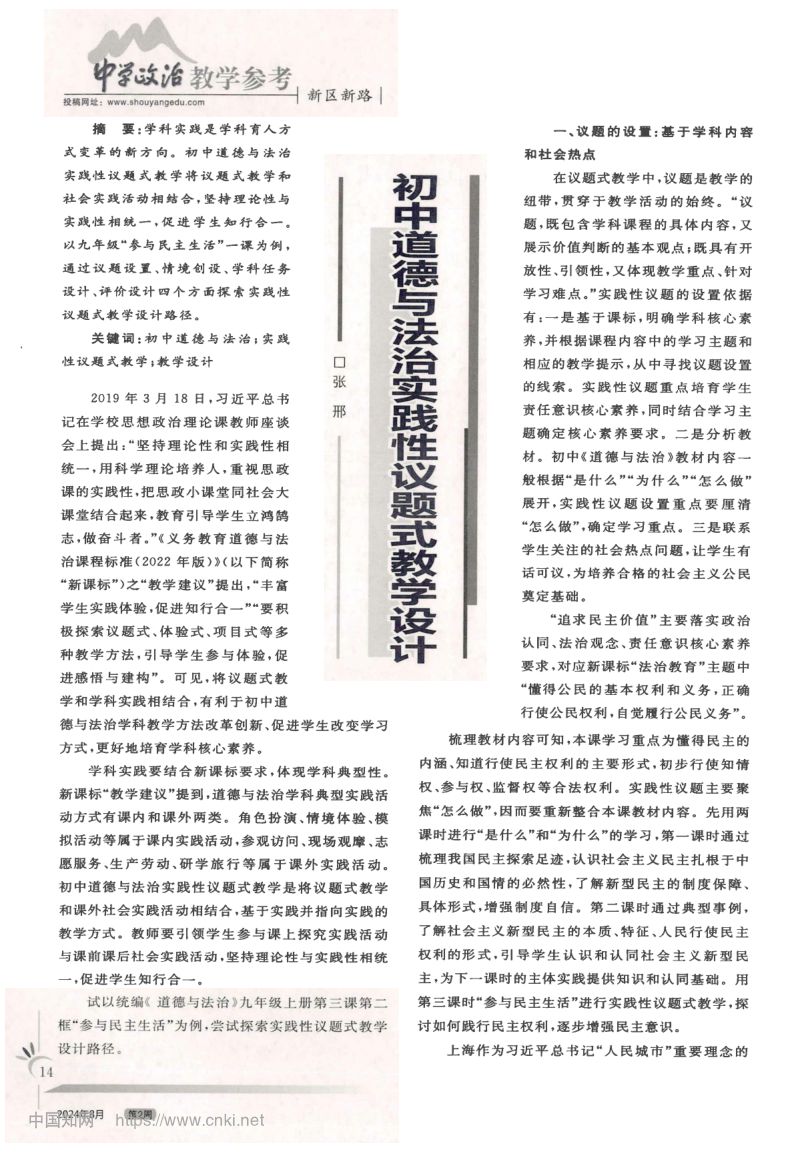 中学政治教学参考
投稿网址：www.shouyangedu.com
新区新路
摘　要：学科实践是学科育人方
式变革的新方向。初中道德与法治
实践性议题式教学将议题式教学和
社会实践活动相结合，坚持理论性与
实践性相统一，促进学生知行合一。
以九年级“参与民主生活”一课为例，
通过议题设置、情境创设、学科任务
设计、评价设计四个方面探索实践性
议题式教学设计路径。
关键词：初中道德与法治；实践
性议题式教学；教学设计
初中道德与法治实践性议题式教学设计
□张　邢
2019 年 3 月 18 日，习近平总书
记在学校思想政治理论课教师座谈
会上提出：“坚持理论性和实践性相
统一，用科学理论培养人，重视思政
课的实践性，把思政小课堂同社会大
课堂结合起来，教育引导学生立鸿鹄
志，做奋斗者。”《义务教育道德与法
治课程标准（2022 年版）》（以下简称
“新课标”）之“教学建议”提出，“丰富
学生实践体验，促进知行合一”“要积
极探索议题式、体验式、项目式等多
种教学方法，引导学生参与体验，促
进感悟与建构”。可见，将议题式教
学和学科实践相结合，有利于初中道
德与法治学科教学方法改革创新、促进学生改变学习
方式，更好地培育学科核心素养。
学科实践要结合新课标要求，体现学科典型性。
新课标“教学建议”提到，道德与法治学科典型实践活
动方式有课内和课外两类。角色扮演、情境体验、模
拟活动等属于课内实践活动，参观访问、现场观摩、志
愿服务、生产劳动、研学旅行等属于课外实践活动。
初中道德与法治实践性议题式教学是将议题式教学
和课外社会实践活动相结合，基于实践并指向实践的
教学方式。教师要引领学生参与课上探究实践活动
与课前课后社会实践活动，坚持理论性与实践性相统
一，促进学生知行合一。
试以统编《 道德与法治》九年级上册第三课第二
框“参与民主生活”为例，尝试探索实践性议题式教学
设计路径。
一、议题的设置：基于学科内容
和社会热点
在议题式教学中，议题是教学的
纽带，贯穿于教学活动的始终。“议
题，既包含学科课程的具体内容，又
展示价值判断的基本观点；既具有开
放性、引领性，又体现教学重点、针对
学习难点。”实践性议题的设置依据
有：一是基于课标，明确学科核心素
养，并根据课程内容中的学习主题和
相应的教学提示，从中寻找议题设置
的线索。实践性议题重点培育学生
责任意识核心素养，同时结合学习主
题确定核心素养要求。二是分析教
材。初中《道德与法治》教材内容一
般根据“是什么”“为什么”“怎么做”
展开，实践性议题设置重点要厘清
“怎么做”，确定学习重点。三是联系
学生关注的社会热点问题，让学生有
话可议，为培养合格的社会主义公民
奠定基础。
“追求民主价值”主要落实政治
认同、法治观念、责任意识核心素养
要求，对应新课标“法治教育”主题中
“懂得公民的基本权利和义务，正确
行使公民权利，自觉履行公民义务”。
梳理教材内容可知，本课学习重点为懂得民主的
内涵、知道行使民主权利的主要形式，初步行使知情
权、参与权、监督权等合法权利。实践性议题主要聚
焦“怎么做”，因而要重新整合本课教材内容。先用两
课时进行“是什么”和“为什么”的学习，第一课时通过
梳理我国民主探索足迹，认识社会主义民主扎根于中
国历史和国情的必然性，了解新型民主的制度保障、
具体形式，增强制度自信。第二课时通过典型事例，
了解社会主义新型民主的本质、特征、人民行使民主
权利的形式，引导学生认识和认同社会主义新型民
主，为下一课时的主体实践提供知识和认同基础。用
第三课时“参与民主生活”进行实践性议题式教学，探
讨如何践行民主权利，逐步增强民主意识。
上海作为习近平总书记“人民城市”重要理念的
14
2024年3月　第2周
中国知网　https://www.cnki.net